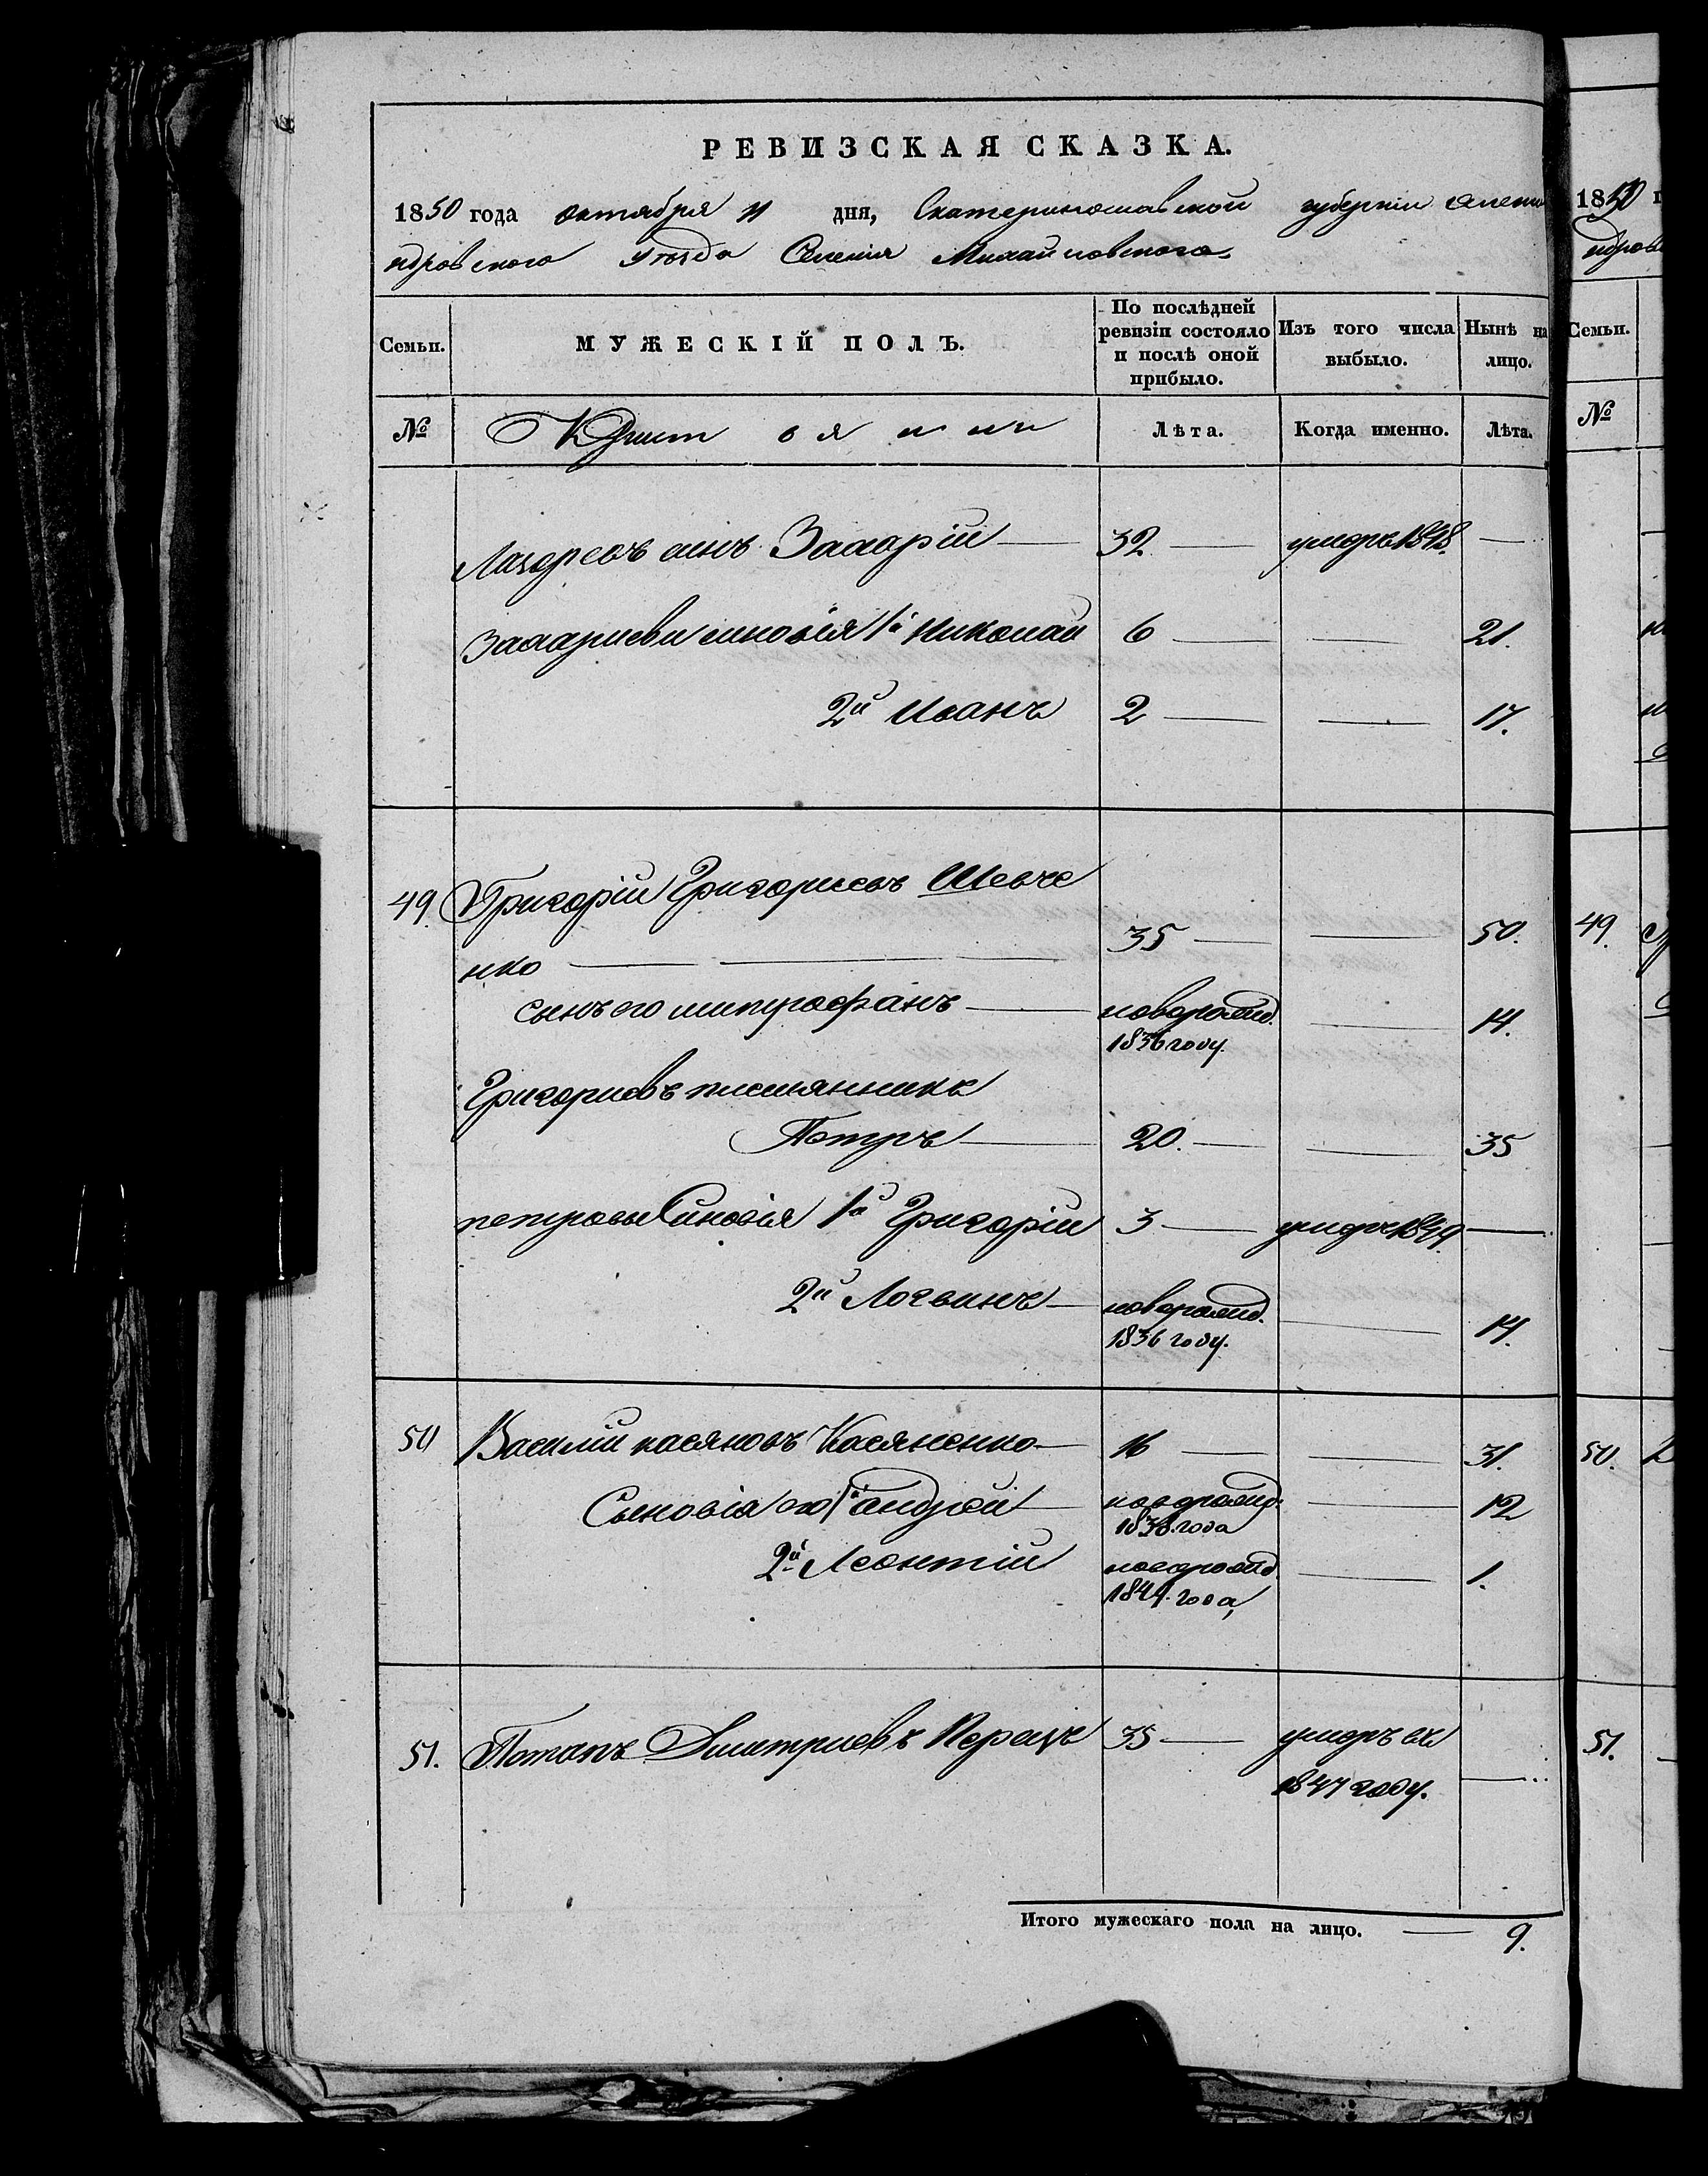 РЕВИЗСКАЯ СКАЗКА.
1850 года октября 11 дня, Екатеринославской губернии Алекса
ндровского уѣзда Селенія Михайловского
Семьи. МУЖЕСКІЙ ПОЛЪ. По послѣдней ревизіи состояло и послѣ оной прибыло. Изъ того числа выбыло. Нынѣ на лицо.
№ Христ ояни Лѣта. Когда именно. Лѣта.
Лазоревъ синъ Захарій 32 умеръ 1848
Захариеви синовія 1й Николай 6 21.
2й Иванъ 2 17.
49. Григорій Григориевъ Шевче
нко 35 50.
сынъ его митрофанъ новорожд. 14.
1836 году.
Григориевъ племянникъ
Петръ 20. 35
петровы Синовія 1й Григорій 3 умеръ 1844.
2й Логвинъ новорожд. 14.
1836 году.
50 Василій касяновъ Касяненко 16 31.
Сыновія его 1й андрей новорожд. 12
1838. года
2й Леонтій новорожд 1.
1849. года,
51. Потапъ Дмитриевъ Перецъ 35 умеръ въ
1847 году.
Итого мужескаго пола на лицо. 9.
1850
ндров
Семьи.
№
49.
50.
51.